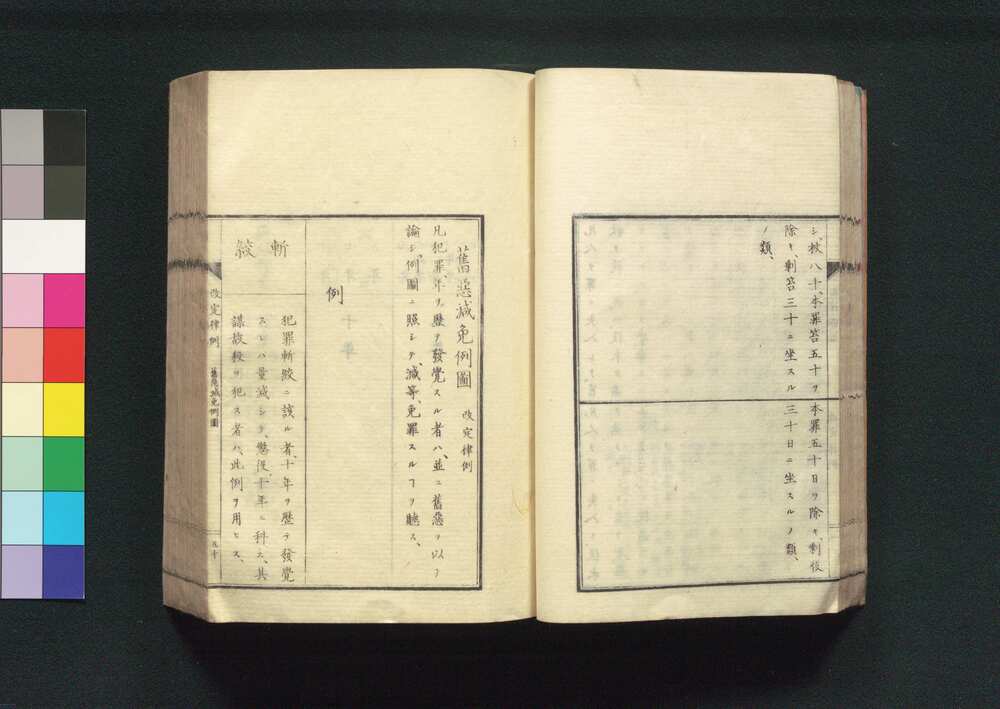 シ、杖八十、本罪笞五十ヲ
除キ、剰笞三十ニ坐スル
ノ類、
本罪五十日ヲ除キ、剰役
三十日ニ坐スルノ類、
舊惡減免例圖 改定律例
凡犯罪、年ヲ歴テ發覺スル者ハ、並ニ舊惡ヲ以テ
論シ、例圖ニ照シテ、減等、免罪スルヿヲ聽ス、
例
斬 絞
犯罪斬絞ニ該ル者、十年ヲ歴テ發覺
スレハ量減シテ、懲役十年ニ科ス、其
謀故殺ヲ犯ス者ハ、此例ヲ用ヒス、
改定律例
舊惡減免例圖
九十